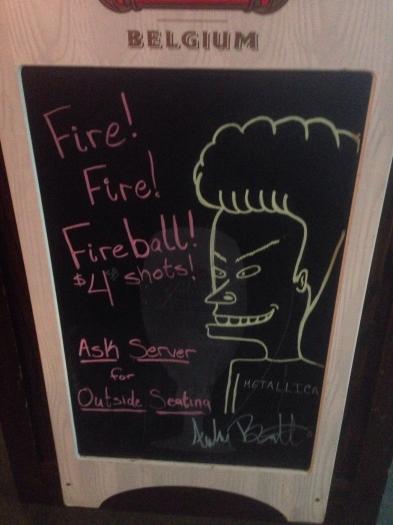 BELGIUM
Fire!
Fire!
Fireball!
$4 shots!
Ask Server
for
Outside Seating
METALLICA